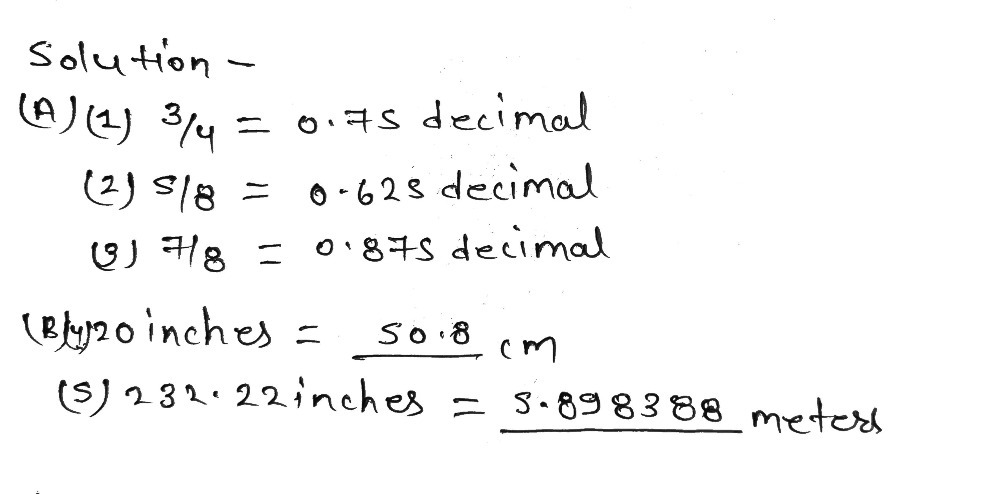 Solution -
(A) (1) 3/4 = 0.75 decimal
(2) 5/8 = 0.625 decimal
(3) 7/8 = 0.875 decimal
(B) (4) 20 inches = 50.8 cm
(5) 232.22 inches = 5.898388 meters